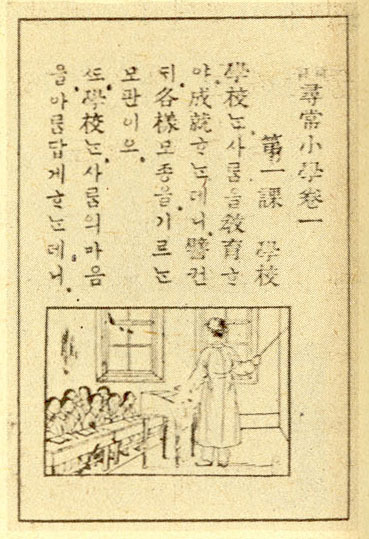 尋常小學卷一
第一課 學校
學校ᄂᆞᆫ사ᄅᆞᆷ을敎育ᄒᆞ
야成就ᄒᆞᄂᆞᆫ데니譬컨
ᄃᆡ各樣모종을기르ᄂᆞᆫ
모판이오
ᄯᅩ學校ᄂᆞᆫ사ᄅᆞᆷ의마음
을아ᄅᆞᆷ답게ᄒᆞᄂᆞᆫ데니